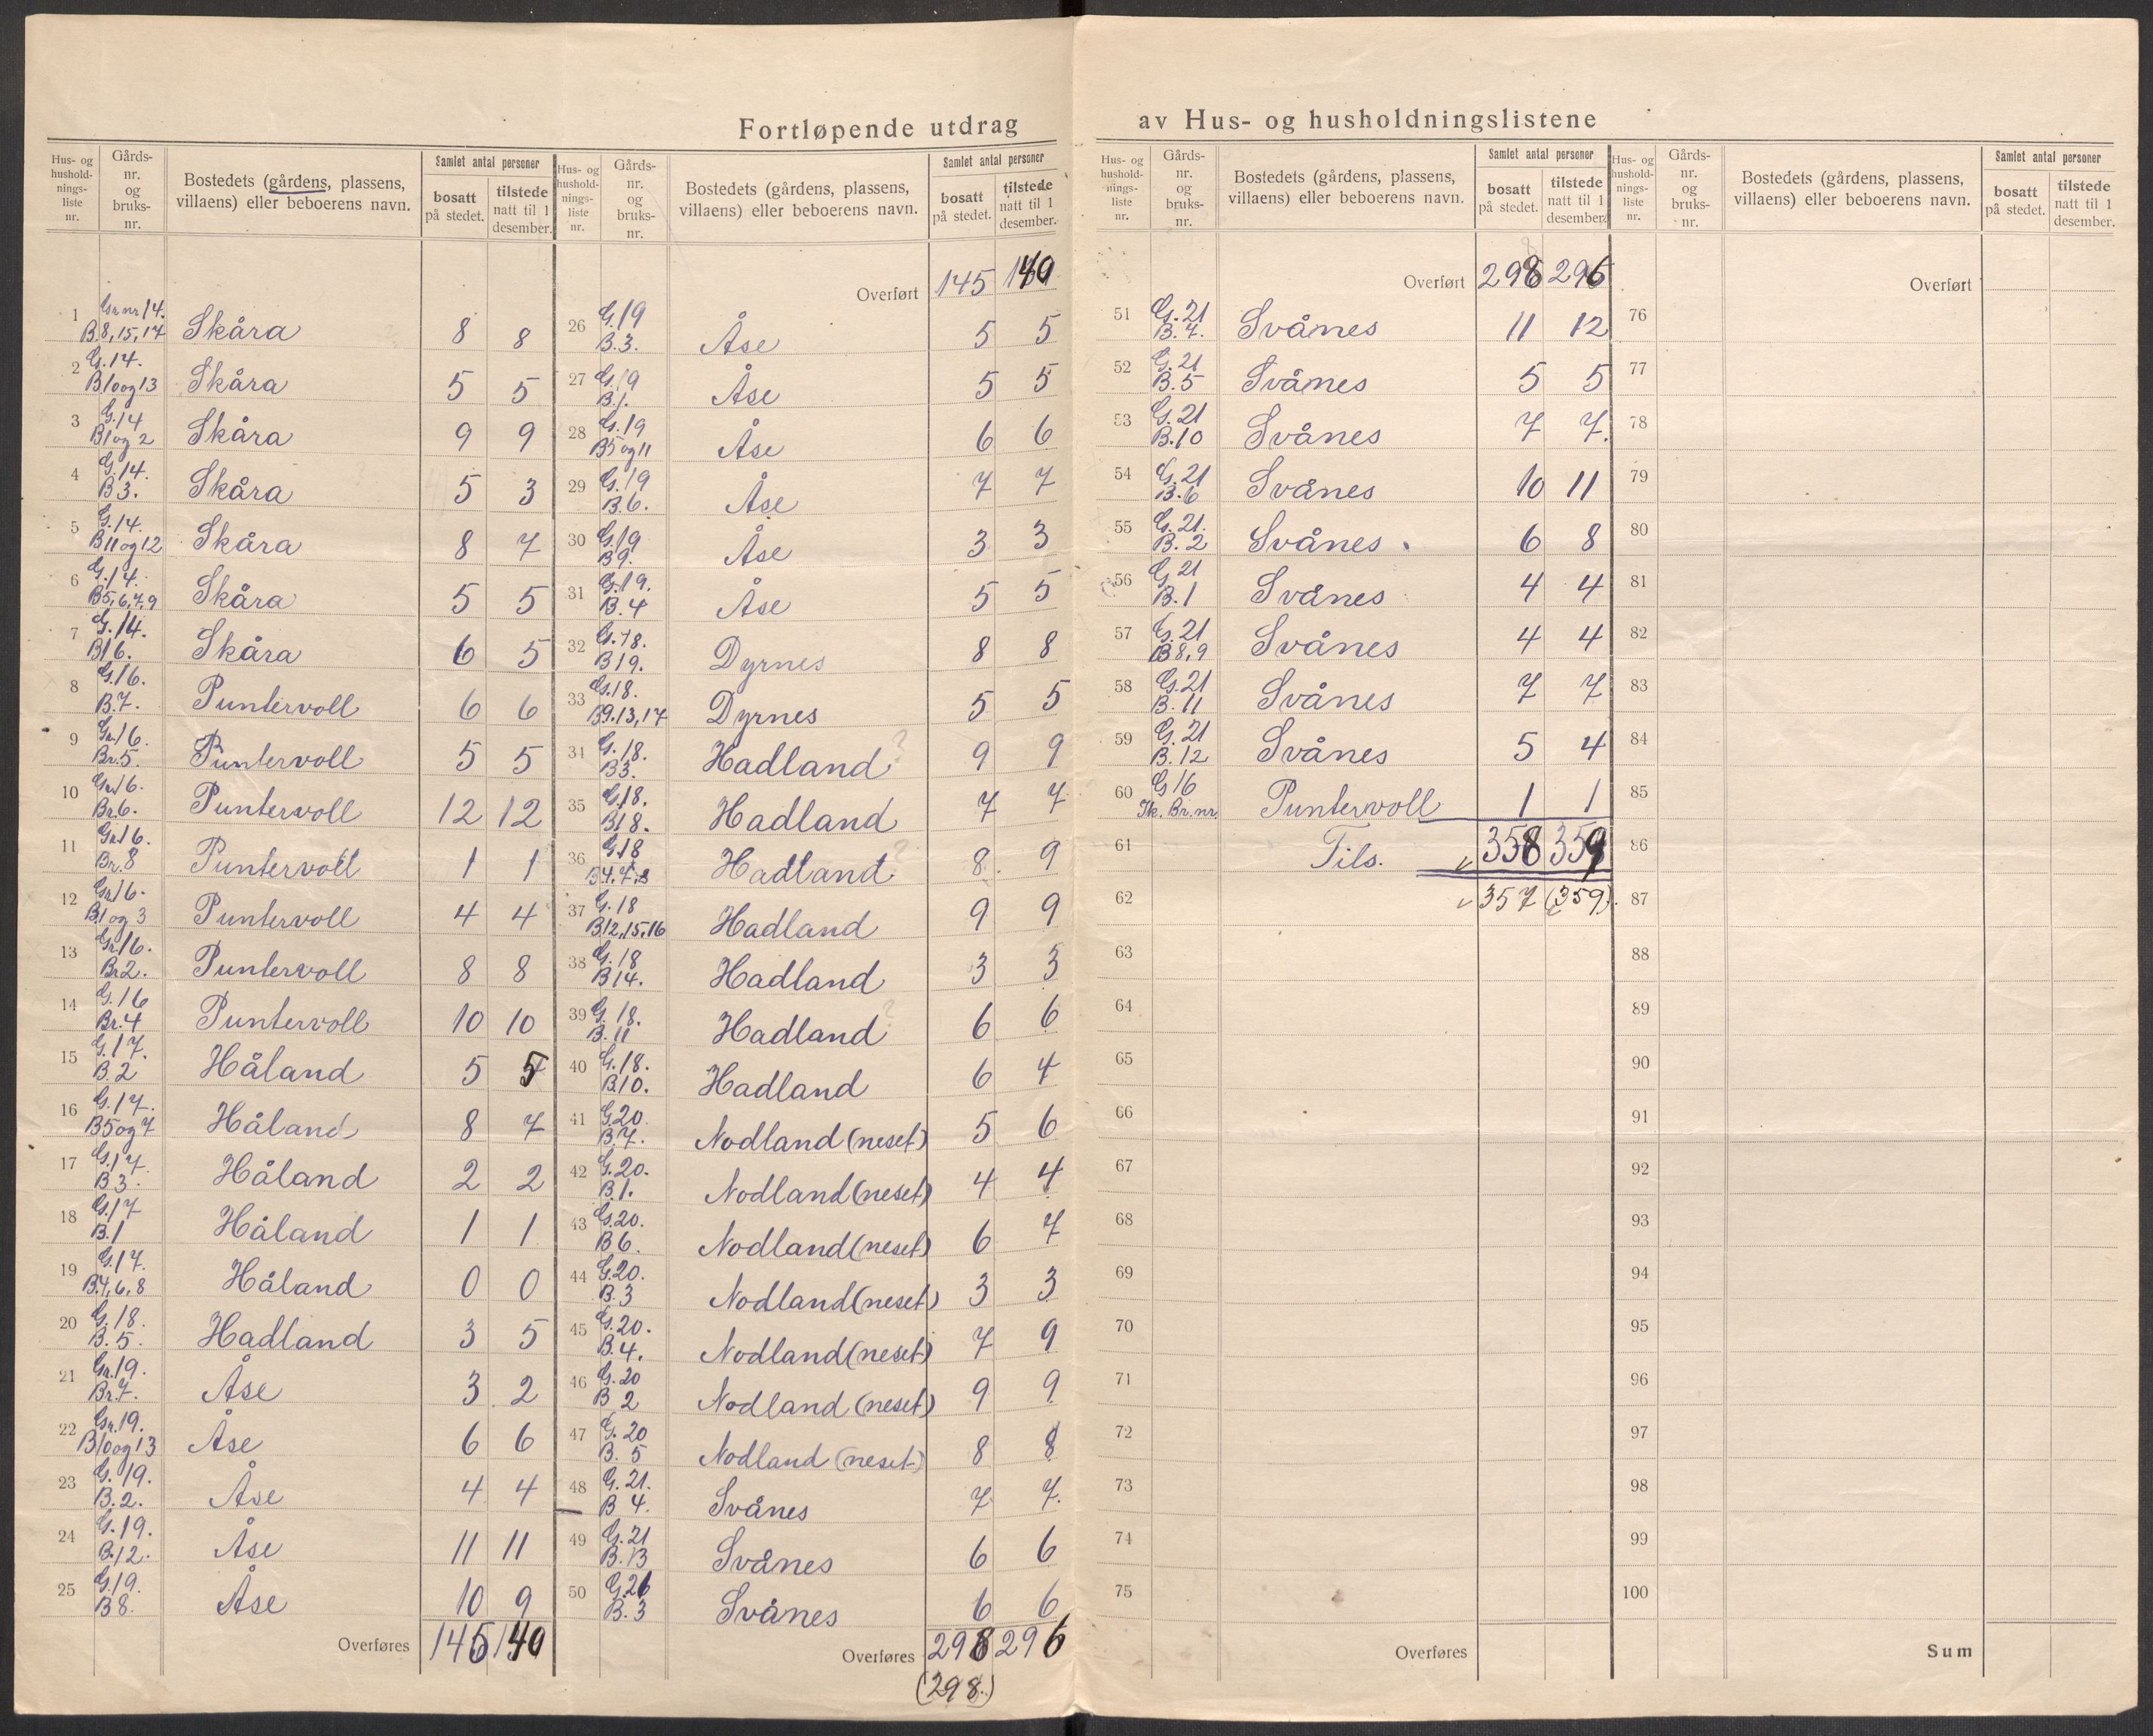 Fortløpende utdrag av Hus- og husholdningslistene
Hus- og hushold-nings-liste nr. Gårds-nr. og bruks-nr. Bostedets (gårdens, plassens, villaens) eller beboerens navn. Samlet antal personer bosatt på stedet. tilstede natt til 1 desember.
1 Gr.nr 14. B.8,15,17 Skåra 8 8
2 G.14. B10og13 Skåra 5 5
3 G.14 B1og 2 Skåra 9 9
4 G.14. B3. Skåra 5 3
5 G.14. B11og12 Skåra 8 7
6 G.14. B5,6,7,9 Skåra 5 5
7 G.14. B16. Skåra 6 5
8 G.16. B.7. Puntervoll 6 6
9 Gr.16. Br.5. Puntervoll 5 5
10 Gr.16. Br.6. Puntervoll 12 12
11 Gr.16. Br.8 Puntervoll 1 1
12 Gr.16. B1og 3 Puntervoll 4 4
13 Gr.16. Br2. Puntervoll 8 8
14 G.16 Br.4 Puntervoll 10 10
15 G.17. B.2 Håland 5 5
16 G.17. B5og7 Håland 8 7
17 G.17. B3. Håland 2 2
18 G.17 B.1 Håland 1 1
19 G.17. B.4,6,8 Håland 0 0
20 G.18. B.5. Hadland 3 5
21 Gr.19. Br.7. Åse 3 2
22 Gr.19. B10og13 Åse 6 6
23 G.19. B.2. Åse 4 4
24 G.19. B.12. Åse 11 11
25 G.19. B8. Åse 10 9
Overføres 145 140
Hus- og hushold-nings-liste nr. Gårds-nr. og bruks-nr. Bostedets (gårdens, plassens, villaens) eller beboerens navn. Samlet antal personer bosatt på stedet. tilstede natt til 1 desember.
Overført 145 140
26 G.19 B.3. Åse 5 5
27 G.19 B.1. Åse 5 5
28 G.19 B5og11 Åse 6 6
29 G.19 B.6. Åse 7 7
30 G.19 B9. Åse 3 3
31 G.19. B.4 Åse 5 5
32 G.18. B19. Dyrnes 8 8
33 G.18. B9.13,17 Dyrnes 5 5
34 G.18. B3. Hadland? 9 9
35 G.18. B18. Hadland 7 7
36 G.18 B4.7,8 Hadland? 8 9
37 G.18 B.12,15,16 Hadland 9 9
38 G.18 B14. Hadland 3 3
39 G.18. B.11 Hadland? 6 6
40 G.18. B.10. Hadland 6 4
41 G.20. B.7. Nodland (neset) 5 6
42 G.20. B.1. Nodland (neset) 4 4
43 G.20. B6. Nodland (neset) 6 7
44 G.20. B.3 Nodland (neset) 3 3
45 G.20. B.4. Nodland (neset) 7 9
46 G.20 B 2 Nodland (neset) 9 9
47 G.20 B. 5 Nodland (neset) 8 8
48 G.21. B 4. Svånes 7 7.
49 G.21 B.13 Svånes 6 6
50 G.21 B.3 Svånes 6 6
Overføres 298 296
(298.)
Hus- og hushold-nings-liste nr. Gårds-nr. og bruks-nr. Bostedets (gårdens, plassens, villaens) eller beboerens navn. Samlet antal personer bosatt på stedet. tilstede natt til 1 desember.
Overført 298 296
51 G.21 B.7. Svånes 11 12
52 G.21 B.5 Svånes 5 5
53 G.21 B.10 Svånes 7 7.
54 G.21 B.6 Svånes 10 11
55 G.21. B.2 Svånes. 6 8
56 G.21 B.1 Svånes 4 4
57 G.21 B8,9 Svånes 4 4
58 G.21 B.11 Svånes 7 7
59 G.21 B.12 Svånes 5 4
60 G16 Ik. Br.nr. Puntervoll 1 1
61 Tils. 358 359
62 357 (359).
63
64
65
66
67
68
69
70
71
72
73
74
75
Overføres
Hus- og hushold-nings-liste nr. Gårds-nr. og bruks-nr. Bostedets (gårdens, plassens, villaens) eller beboerens navn. Samlet antal personer bosatt på stedet. tilstede natt til 1 desember.
Overført
76
77
78
79
80
81
82
83
84
85
86
87
88
89
90
91
92
93
94
95
96
97
98
99
100
Sum